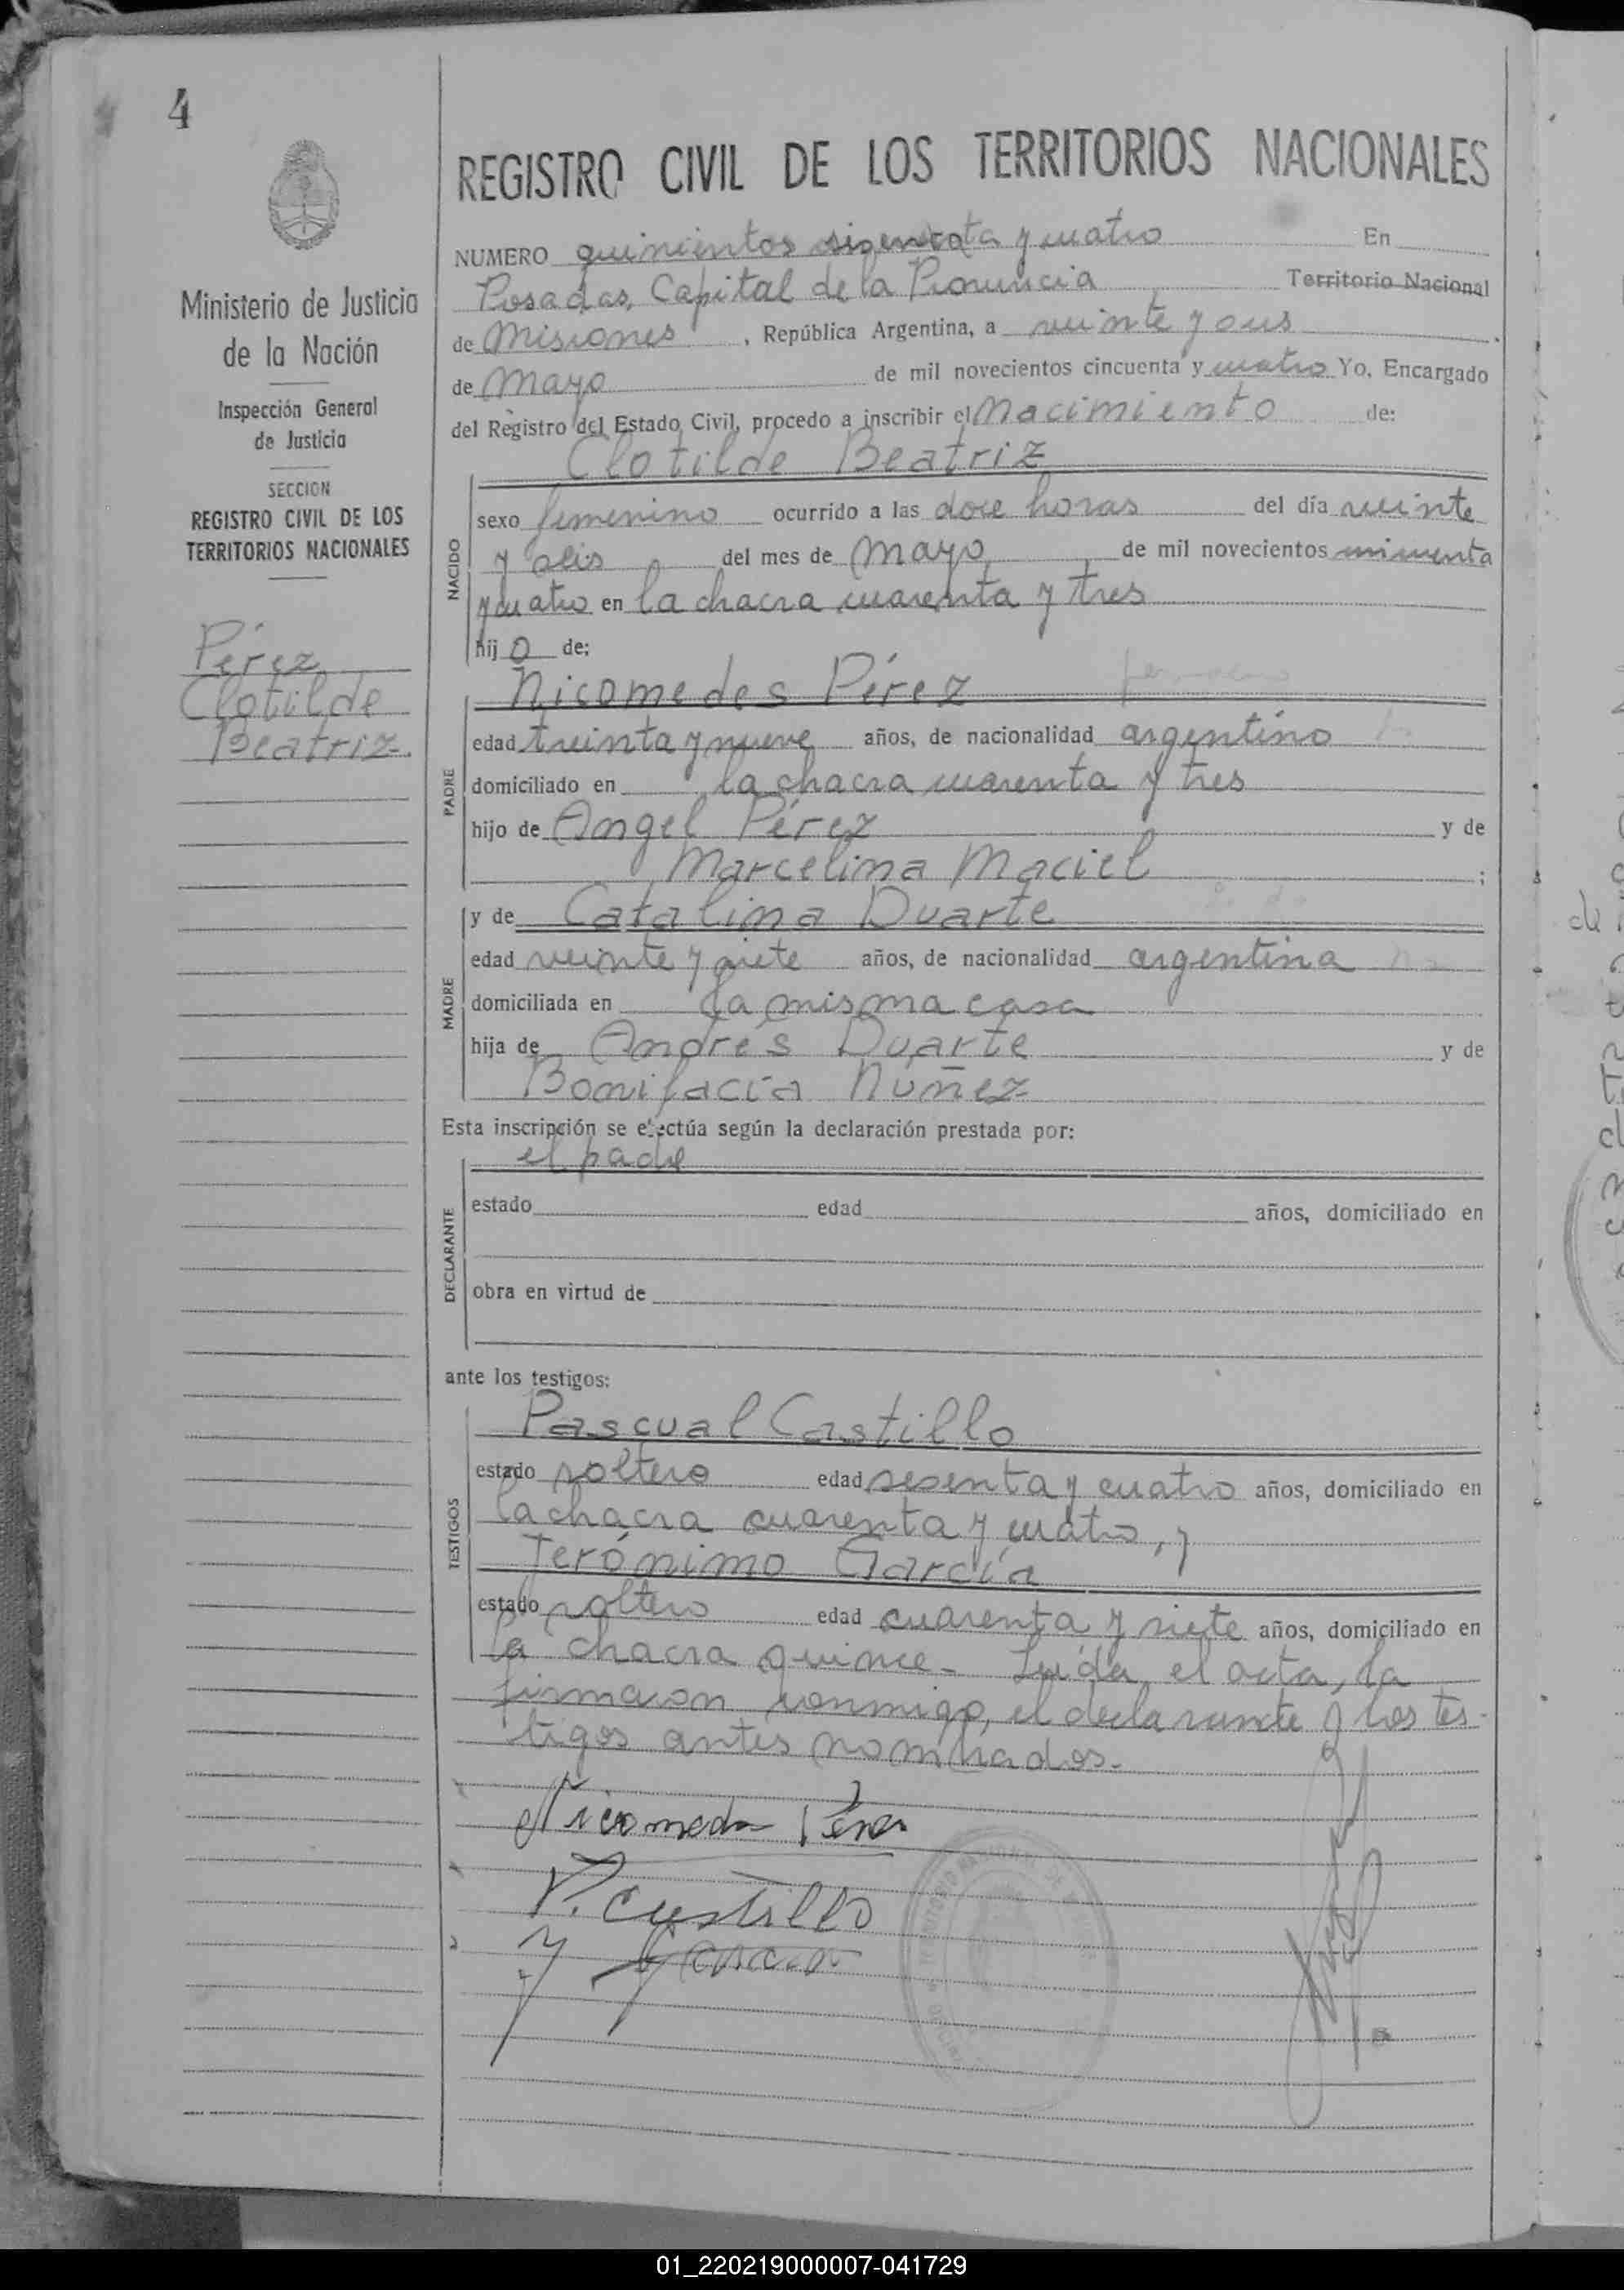 4
REGISTRO CIVIL DE LOS TERRITORIOS NACIONALES
Ministerio de Justicia
de la Nación
Inspección General
de Justicia
SECCION
REGISTRO CIVIL DE LOS
TERRITORIOS NACIONALES
Pérez
Clotilde
Beatriz.
NUMERO quinientos y cuatro En
Posadas, Capital de la Provincia Territorio Nacional
de Misiones, República Argentina, a veinte y
de Mayo de mil novecientos cincuenta y cuatro Yo, Encargado
del Registro del Estado Civil, procedo a inscribir el Nacimiento de:
Clotilde Beatriz
NACIDO
sexo femenino ocurrido a las doce horas del día veinte
y seis del mes de Mayo de mil novecientos cincuenta
y cuatro en la chacra cuarenta y tres
hijo de:
PADRE
Nicomedes Pérez
edad treinta y nueve años, de nacionalidad argentino
domiciliado en la chacra cuarenta y tres
hijo de Angel Pérez y de
Marcelina Maciel ;
MADRE
y de Catalina Duarte
edad veinte y siete años, de nacionalidad argentina
domiciliada en la misma casa
hija de Andrés Duarte y de
Bonifacia Nuñez
Esta inscripción se efectúa según la declaración prestada por:
DECLARANTE
el padre
estado edad años, domiciliado en
obra en virtud de
ante los testigos:
TESTIGOS
Pascual Castillo
estado soltero edad sesenta y cuatro años, domiciliado en
la chacra cuarenta y cuatro, y
Jerónimo García
estado soltero edad cuarenta y siete años, domiciliado en
la chacra quince. Leída el acta, la
firmaron conmigo, el declarante y los tes-
tigos antes nominados.
Nicomedes Pérez
P. Castillo
J. Garcia
TERRITORIO NACIONAL DE
01_220219000007-041729